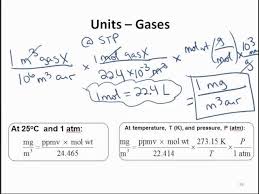 Units – Gases
@ STP
1 m³ gas X / 10⁶ m³ air × 1 mol gas X / 22.4 × 10⁻³ m³ × mol wt (g / mol) × 10³ mg / g
1 mol = 22.4 L
1 mg / m³ air
At 25°C and 1 atm:
mg / m³ = ppmv × mol wt / 24.465
At temperature, T (K), and pressure, P (atm):
mg / m³ = ppmv × mol wt / 22.414 × 273.15 K / T × P / 1 atm